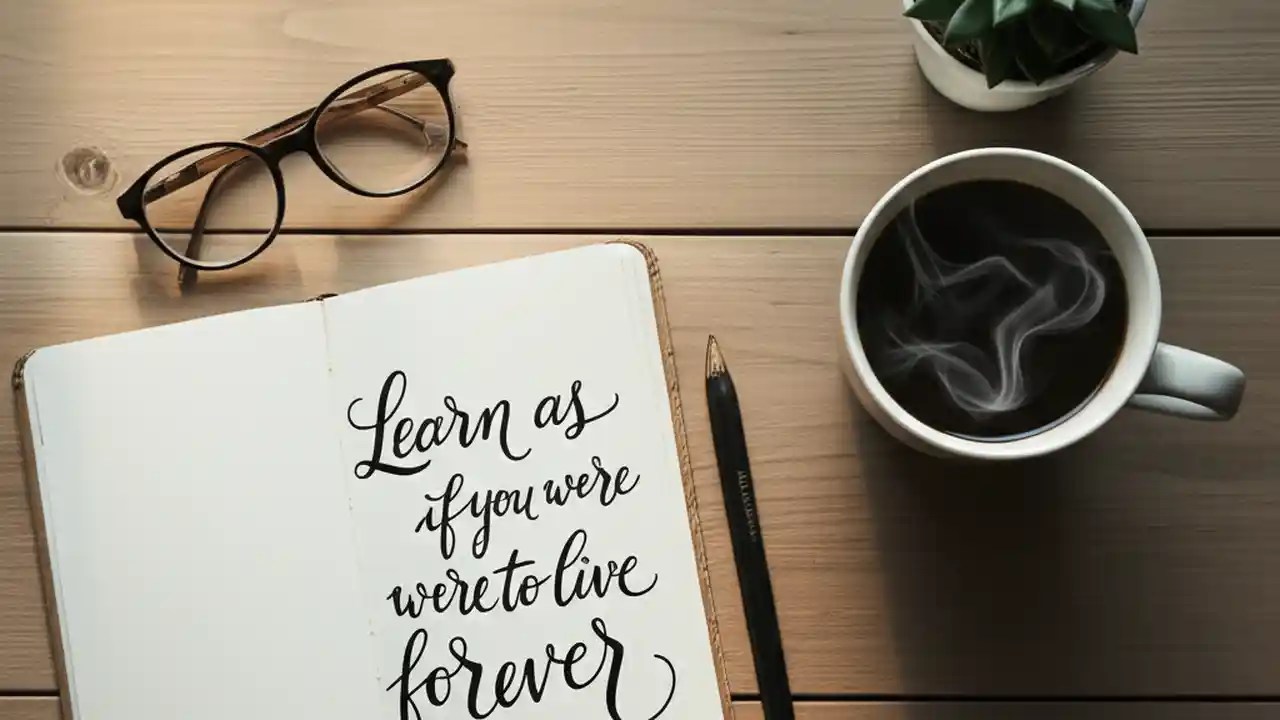 Learn as
if you were
were to live
forever